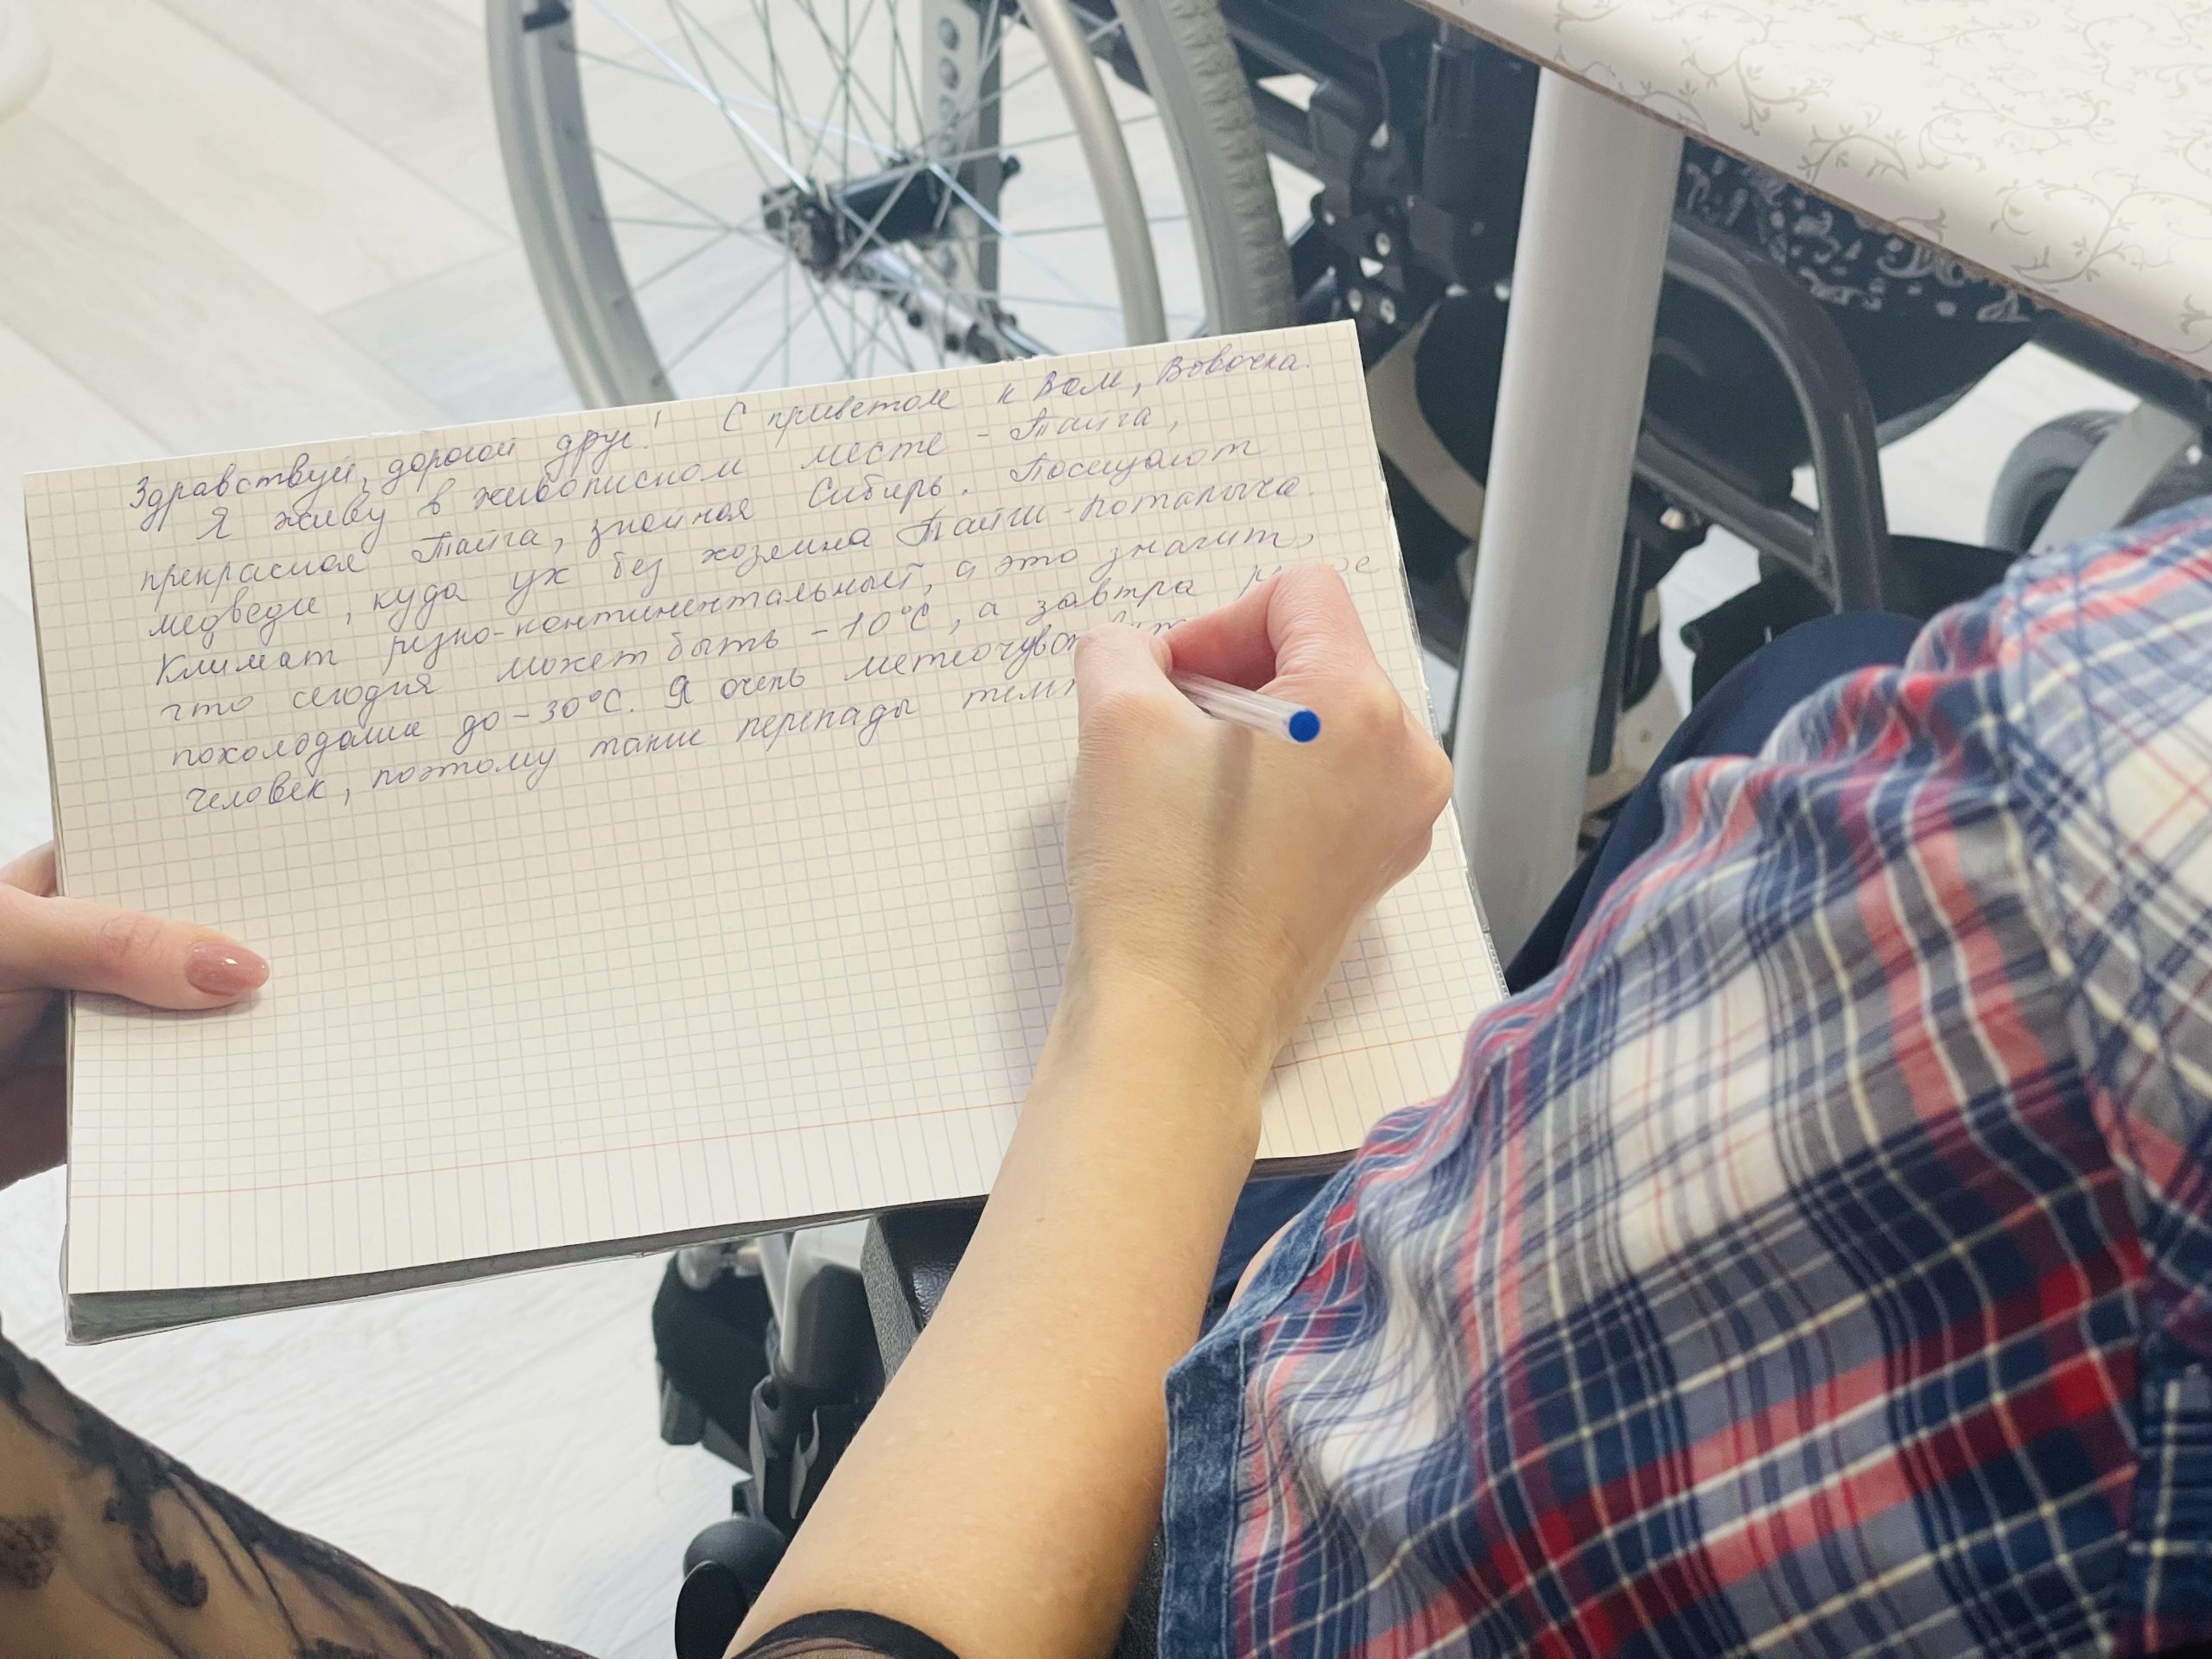 Здравствуй, дорогой друг! С приветом к Вам, Вовочка.
Я живу в живописном месте - Тайга,
прекрасная Тайга, знойная Сибирь. Посещают
медведи, куда уж без хозяина Тайги - Потапыча.
Климат резко-континентальный, а это значит,
что сегодня может быть -10°С, а завтра
похолодание до -30°С. Я очень
человек, поэтому такие перепады